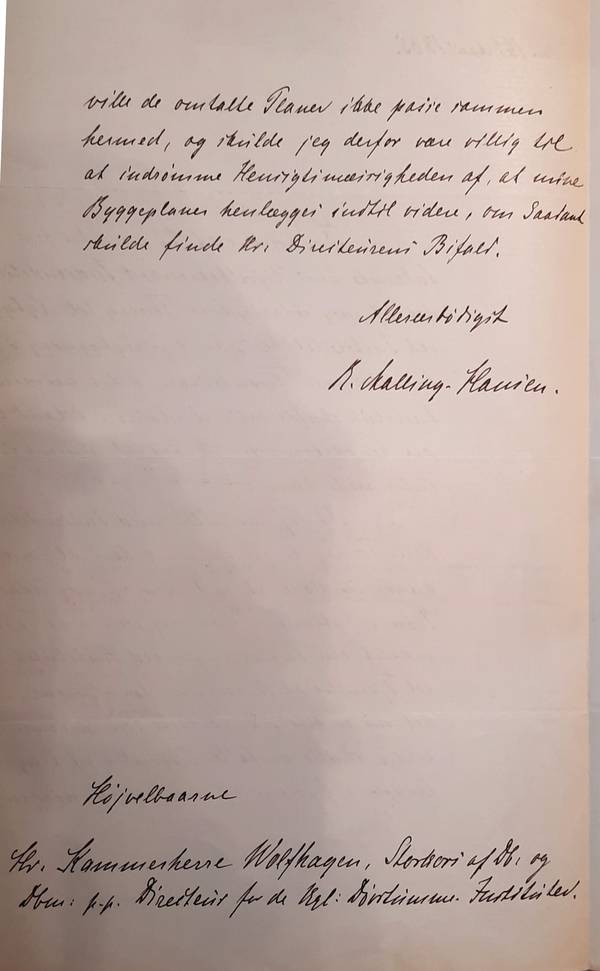 ville de omtalte Planer ikke passe sammen
hermed, og skulde jeg derfor være villig til
at indrømme Hensigtsmæssigheden af, at mine
Byggeplaner henlægges indtil videre, om Saadant
skulde finde Hr: Directeurens Bifald.
Allerærbødigst
R. Malling-Hansen.
Højvelbaarne
Hr. Kammerherre Wolfhagen, Storkors af Db: og
Dbm: p.p. Directeur for de Kgl: Døvstumme-Institutter.